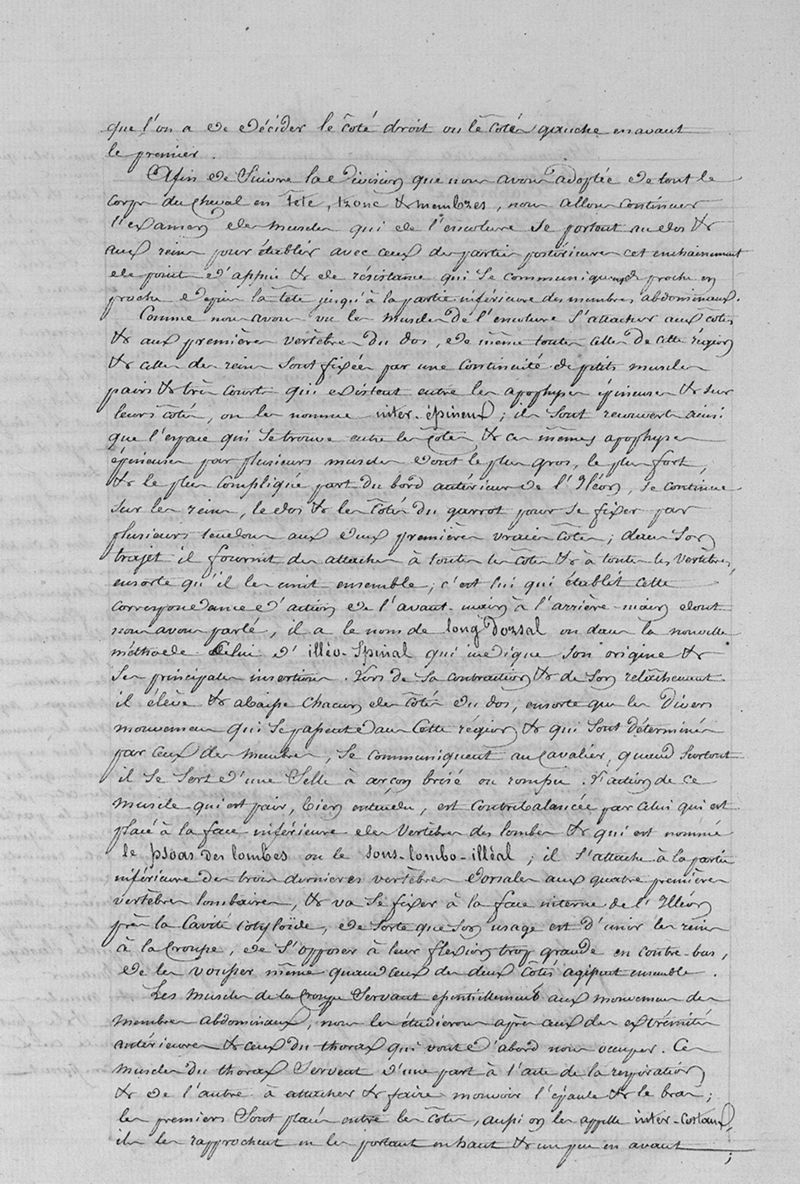 que l'on a de décider le coté droit ou le coté gauche en avant
le premier.
Afin de Suivre la division que nous avons adoptée de tout le
corps du cheval en tête, tronc & membres, nous allons continuer
l'examen des muscles qui de l'encolure se portent au dos &
aux reins pour établir avec ceux des parties postérieures cet enchainement
de point d'appui & de résistance qui se communiquent de proche en
proche depuis la tête jusqu'à la partie inférieure des membres abdominaux.
Comme nous avons vu les muscles de l'encolure s'attacher aux cotes
& aux premières vertèbres du dos, de même toutes celles de cette région
& celles des reins sont fixées par une continuité de petits muscles
pairs & très courts qui existent entre les apophyses épineuses & sur
leurs cotés, on les nomme inter-épineux; ils sont recouverts ainsi
que l'espace qui se trouve entre les cotes & ces mêmes apophyses
épineuses par plusieurs muscles dont le plus gros, le plus fort,
& le plus compliqué part du bord antérieur de l'Iléon, se continue
sur les reins, le dos & les cotés du garrot pour se fixer par
plusieurs tendons aux deux premières vraies cotes; dans son
trajet il fournit des attaches à toutes les cotes & à toutes les vertèbres,
ensorte qu'il les unit ensemble; c'est lui qui établit cette
correspondance d'action de l'avant-main à l'arrière-main dont
nous avons parlé, il a le nom de long Dorsal ou dans la nouvelle
méthode celui d'illéo-Spinal qui indique son origine &
ses principales insertions. Lors de sa contraction & de son relâchement
il élève & abaisse chacun des cotés du dos, ensorte que les divers
mouvemens qui se passent dans cette région & qui sont déterminés
par ceux des membres, se communiquent au Cavalier, quand surtout
il se sert d'une Selle à arçon brisé ou rompu. L'action de ce
muscle qui est pair, bien entendu, est contrebalancée par celui qui est
placé à la face inférieure des vertèbres des lombes & qui est nommé
le psoas des lombes ou le sous-lombo-illéal; il s'attache à la partie
inférieure des trois dernières vertèbres dorsales aux quatre premières
vertèbres lombaires, & va se fixer à la face interne de l'Illéon
près la cavité cotyloïde, de sorte que son usage est d'unir les reins
à la Croupe, de s'opposer à leur flexion trop grande en contre-bas,
de les vousser même quand ceux des deux cotés agissent ensemble.
Les muscles de la Croupe Servant essentiellement aux mouvemens des
membres abdominaux, nous les étudierons après ceux des extrémités
antérieures & ceux du thorax qui vont d'abord nous occuper. Ces
muscles du thorax servent d'une part à l'acte de la respiration
& de l'autre à attacher & faire mouvoir l'épaule & le bras;
les premiers sont placés entre les cotes, aussi on les appelle inter-Costaux,
ils les rapprochent en les portant en haut & un peu en avant;